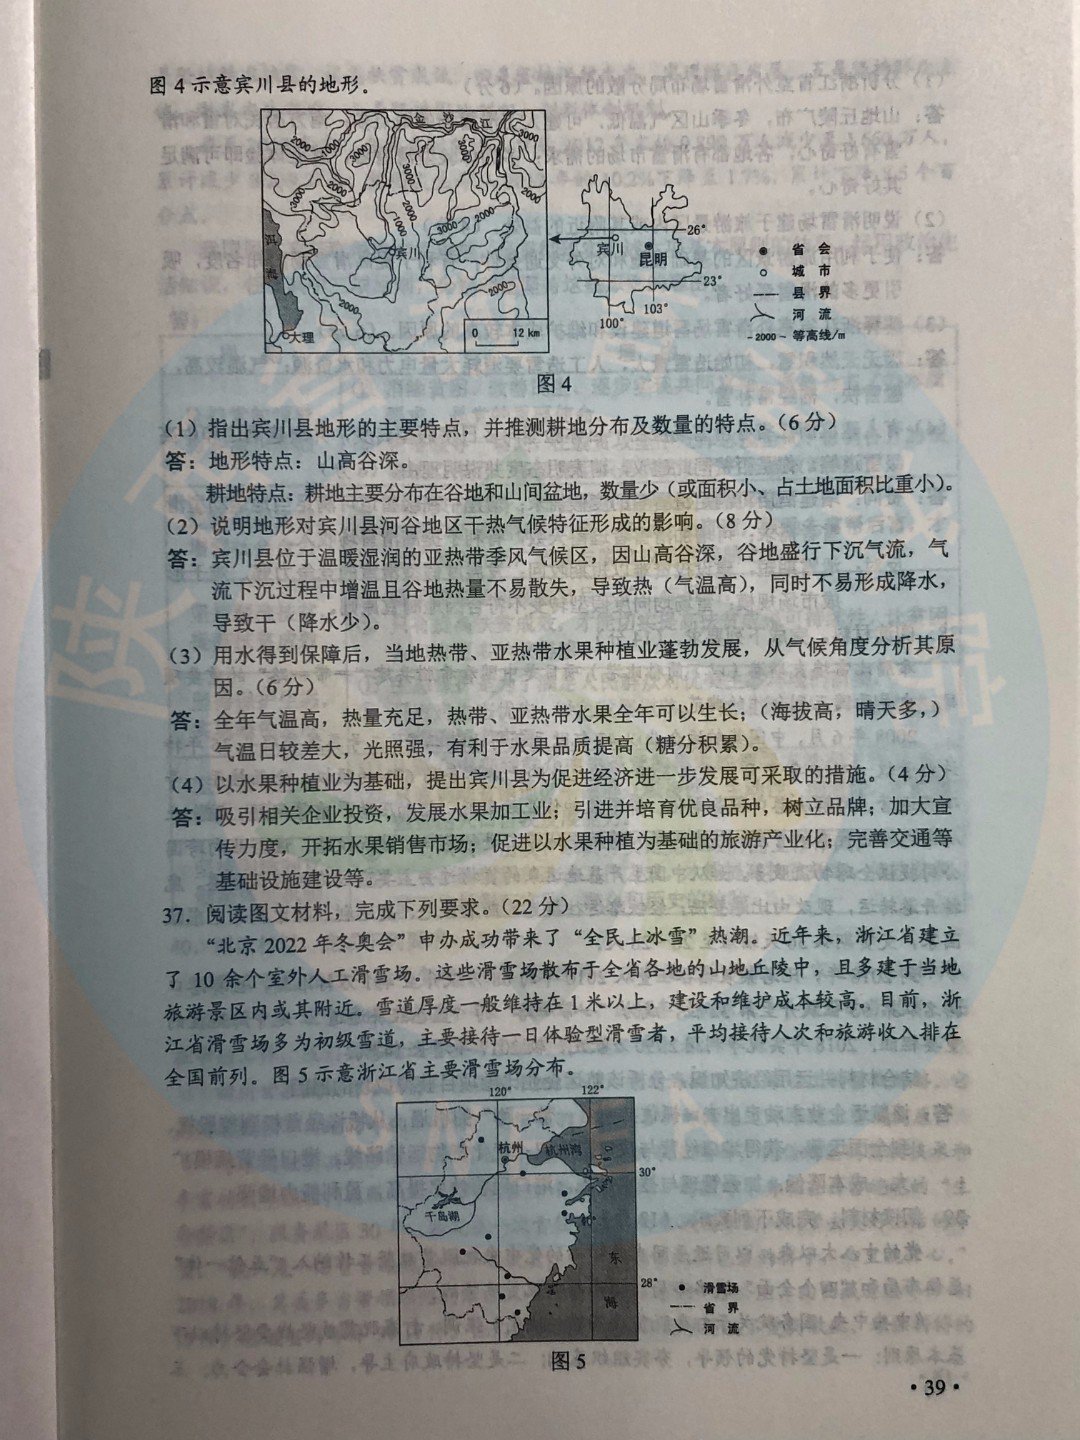 图 4 示意宾川县的地形。
金 沙 江
3000
2000
1000
宾川
洱海
大理
0 12 km
26°
宾川
昆明
23°
100° 103°
省 会
城 市
县 界
河 流
-2000- 等高线/m
图 4
（1）指出宾川县地形的主要特点，并推测耕地分布及数量的特点。（6 分）
答：地形特点：山高谷深。
耕地特点：耕地主要分布在谷地和山间盆地，数量少（或面积小、占土地面积比重小）。
（2）说明地形对宾川县河谷地区干热气候特征形成的影响。（8 分）
答：宾川县位于温暖湿润的亚热带季风气候区，因山高谷深，谷地盛行下沉气流，气
流下沉过程中增温且谷地热量不易散失，导致热（气温高），同时不易形成降水，
导致干（降水少）。
（3）用水得到保障后，当地热带、亚热带水果种植业蓬勃发展，从气候角度分析其原
因。（6 分）
答：全年气温高，热量充足，热带、亚热带水果全年可以生长；（海拔高，晴天多，）
气温日较差大，光照强，有利于水果品质提高（糖分积累）。
（4）以水果种植业为基础，提出宾川县为促进经济进一步发展可采取的措施。（4 分）
答：吸引相关企业投资，发展水果加工业；引进并培育优良品种，树立品牌；加大宣
传力度，开拓水果销售市场；促进以水果种植为基础的旅游产业化；完善交通等
基础设施建设等。
37．阅读图文材料，完成下列要求。（22 分）
“北京 2022 年冬奥会”申办成功带来了“全民上冰雪”热潮。近年来，浙江省建立
了 10 余个室外人工滑雪场。这些滑雪场散布于全省各地的山地丘陵中，且多建于当地
旅游景区内或其附近。雪道厚度一般维持在 1 米以上，建设和维护成本较高。目前，浙
江省滑雪场多为初级雪道，主要接待一日体验型滑雪者，平均接待人次和旅游收入排在
全国前列。图 5 示意浙江省主要滑雪场分布。
120° 122°
杭州
杭州湾
30°
千岛湖
东
海
28°
滑雪场
省 界
河 流
图 5
· 39 ·